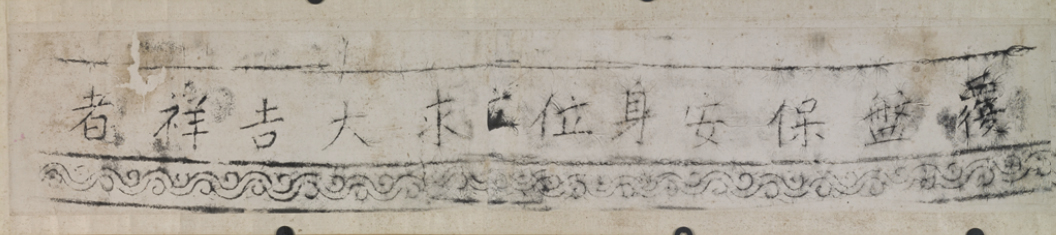 覆盤保安身位求大吉祥者